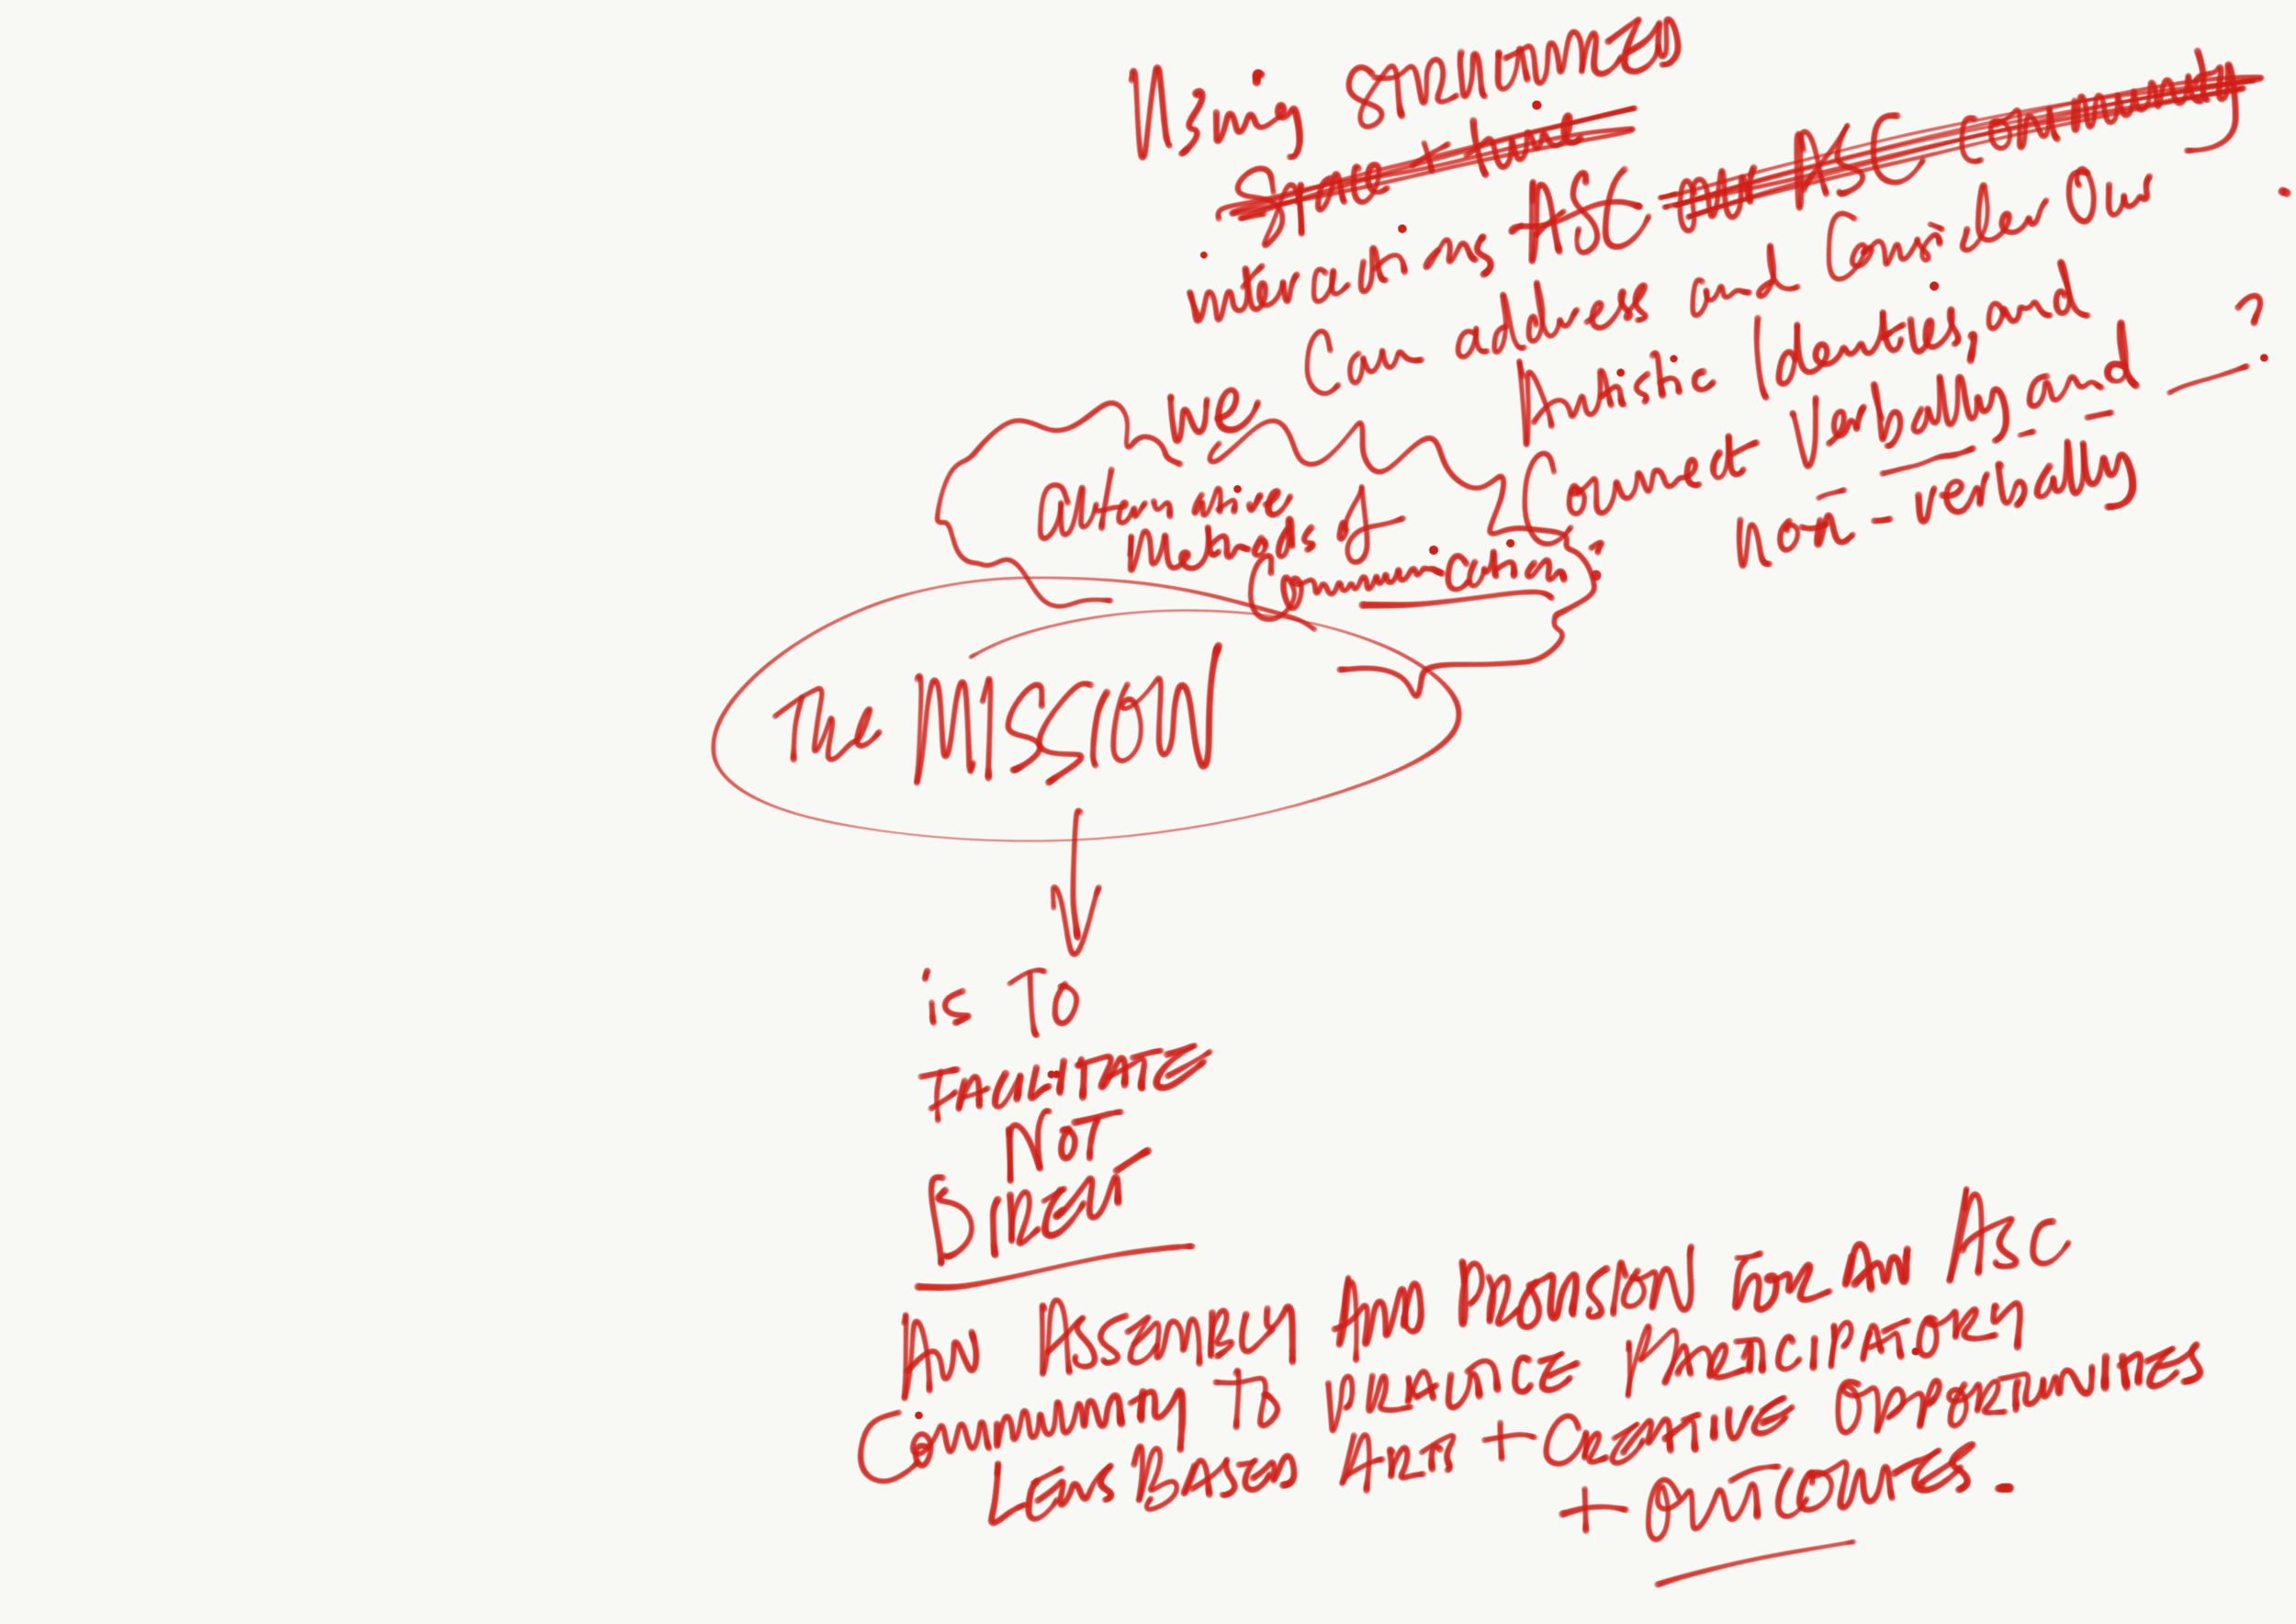 Using STRUCTURED
Space + time
interactions ASC our ASC Community
We Can address and Consider Our
Autistic Identities, and
Connect Verbally and ___?
non-verbally
alternative
Methods of
Communication?
The MISSION
is To
FACILITATE
NOT
DIRECT
AN ASSEMBLY AND PROVISION FOR AN ASC
COMMUNITY TO PRACTICE PARTICIPATORY
LENS BASED ARTS + CREATIVE OPPORTUNITIES
+ OUTCOMES.